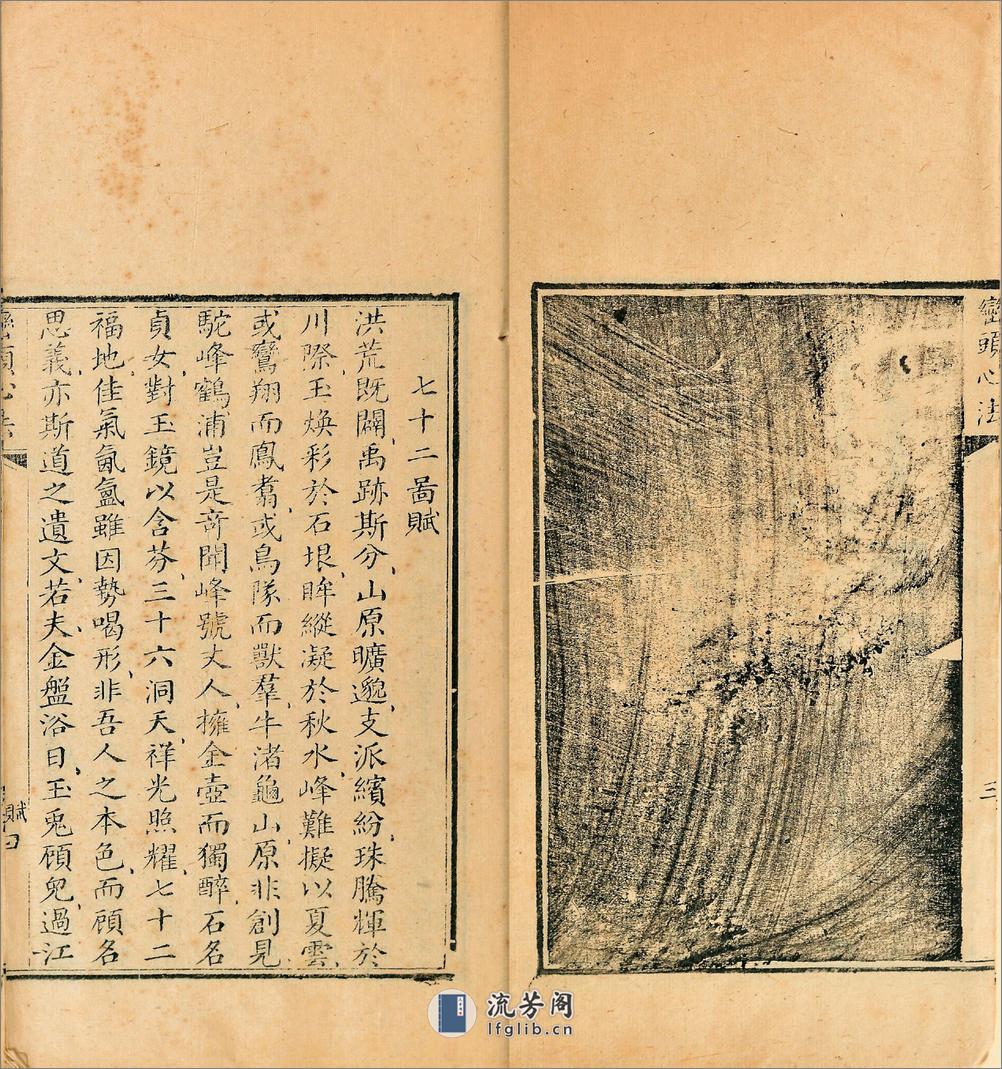 巒頭心法
三
七十二啚賦
洪荒既闢禹跡斯分山原曠邈支派繽紛珠騰輝於
川際玉煥彩於石垠眸縱凝於秋水峰難擬以夏雲
或鸞翔而鳳翥或鳥隊而獸羣牛渚龜山原非創見
駝峰鶴浦豈是奇聞峰號丈人擁金壺而獨醉石名
貞女對玉鏡以含芬三十六洞天祥光照耀七十二
福地佳氣氤氳雖因勢喝形非吾人之本色而顧名
思義亦斯道之遺文若夫金盤浴日玉兎顧兒過江
賦
流芳阁
lfglib.cn